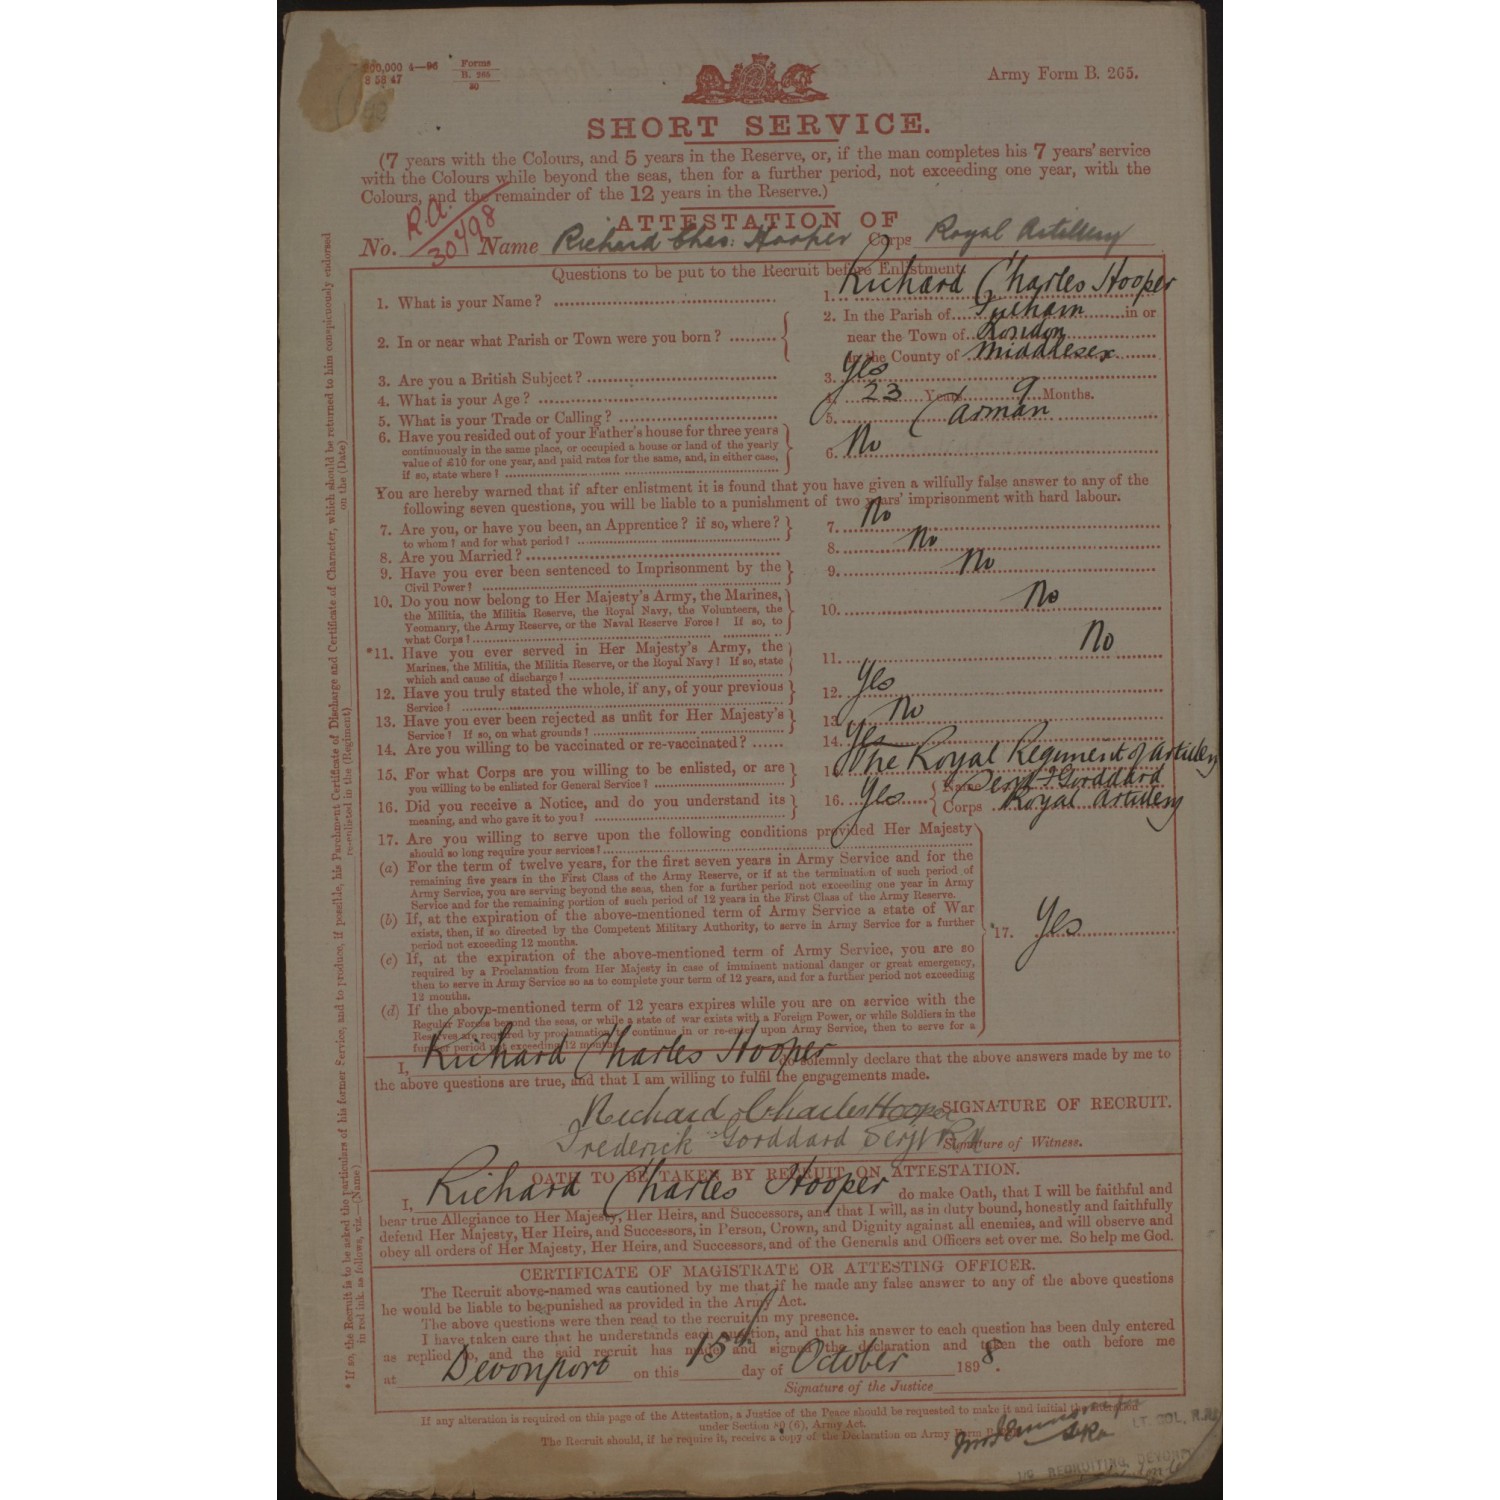 200,000 4—96 Forms B. 265 30
8 58 47
Army Form B. 265.
SHORT SERVICE.
(7 years with the Colours, and 5 years in the Reserve, or, if the man completes his 7 years' service
with the Colours while beyond the seas, then for a further period, not exceeding one year, with the
Colours, and the remainder of the 12 years in the Reserve.)
R.A.
ATTESTATION OF
No. Name Richard Chas: Hooper Corps Royal Artillery
Questions to be put to the Recruit before Enlistment.
1. What is your Name? 1. Richard Charles Hooper
2. In or near what Parish or Town were you born? 2. In the Parish of Fulham in or
near the Town of London
in the County of Middlesex
3. Are you a British Subject? 3. Yes
4. What is your Age? 4. 23 Years 9 Months.
5. What is your Trade or Calling? 5. Carman
6. Have you resided out of your Father's house for three years
continuously in the same place, or occupied a house or land of the yearly
value of £10 for one year, and paid rates for the same, and, in either case,
if so, state where? 6. No
You are hereby warned that if after enlistment it is found that you have given a wilfully false answer to any of the
following seven questions, you will be liable to a punishment of two years' imprisonment with hard labour.
7. Are you, or have you been, an Apprentice? if so, where?
to whom? and for what period? 7. No
8. Are you Married? 8. No
9. Have you ever been sentenced to Imprisonment by the
Civil Power? 9. No
10. Do you now belong to Her Majesty's Army, the Marines,
the Militia, the Militia Reserve, the Royal Navy, the Volunteers, the
Yeomanry, the Army Reserve, or the Naval Reserve Force? If so, to
what Corps? 10. No
*11. Have you ever served in Her Majesty's Army, the
Marines, the Militia, the Militia Reserve, or the Royal Navy? If so, state
which and cause of discharge? 11. No
12. Have you truly stated the whole, if any, of your previous
Service? 12. Yes
13. Have you ever been rejected as unfit for Her Majesty's
Service? If so, on what grounds? 13. No
14. Are you willing to be vaccinated or re-vaccinated? 14. Yes
15. For what Corps are you willing to be enlisted, or are
you willing to be enlisted for General Service? 15. The Royal Regiment of Artillery
16. Did you receive a Notice, and do you understand its
meaning, and who gave it to you? 16. Yes Name Serjt F Gorddard
Corps Royal Artillery
17. Are you willing to serve upon the following conditions provided Her Majesty
should so long require your services?
(a) For the term of twelve years, for the first seven years in Army Service and for the
remaining five years in the First Class of the Army Reserve, or if at the termination of such period of
Army Service, you are serving beyond the seas, then for a further period not exceeding one year in Army
Service and for the remaining portion of such period of 12 years in the First Class of the Army Reserve.
(b) If, at the expiration of the above-mentioned term of Army Service a state of War
exists, then, if so directed by the Competent Military Authority, to serve in Army Service for a further
period not exceeding 12 months.
(c) If, at the expiration of the above-mentioned term of Army Service, you are so
required by a Proclamation from Her Majesty in case of imminent national danger or great emergency,
then to serve in Army Service so as to complete your term of 12 years, and for a further period not exceeding
12 months.
(d) If the above-mentioned term of 12 years expires while you are on service with the
Regular Forces beyond the seas, or while a state of war exists with a Foreign Power, or while Soldiers in the
Reserves are required by proclamation to continue in or re-enter upon Army Service, then to serve for a
further period not exceeding 12 months.
*17. Yes
I, Richard Charles Hooper do solemnly declare that the above answers made by me to
the above questions are true, and that I am willing to fulfil the engagements made.
Richard Charles Hooper SIGNATURE OF RECRUIT.
Frederick Gorddard Serjt RA Signature of Witness.
OATH TO BE TAKEN BY RECRUIT ON ATTESTATION.
I, Richard Charles Hooper do make Oath, that I will be faithful and
bear true Allegiance to Her Majesty, Her Heirs, and Successors, and that I will, as in duty bound, honestly and faithfully
defend Her Majesty, Her Heirs, and Successors, in Person, Crown, and Dignity against all enemies, and will observe and
obey all orders of Her Majesty, Her Heirs, and Successors, and of the Generals and Officers set over me. So help me God.
CERTIFICATE OF MAGISTRATE OR ATTESTING OFFICER.
The Recruit above-named was cautioned by me that if he made any false answer to any of the above questions
he would be liable to be punished as provided in the Army Act.
The above questions were then read to the recruit in my presence.
I have taken care that he understands each question, and that his answer to each question has been duly entered
as replied to, and the said recruit has made and signed the declaration and taken the oath before me
at Devonport on this 15th day of October 1898.
Signature of the Justice
If any alteration is required on this page of the Attestation, a Justice of the Peace should be requested to make it and initial the
under Section 80 (6), Army Act.
The Recruit should, if he require it, receive a copy of the Declaration on Army Form B.
LT. COL. R.
RECRUITING,
* If so, the Recruit is to be asked the particulars of his former Service, and to produce, if possible, his Parchment Certificate of Discharge and Certificate of Character, which should be returned to him conspicuously endorsed
in red ink, as follows, viz.—(Name) re-enlisted in the (Regiment) on the (Date)